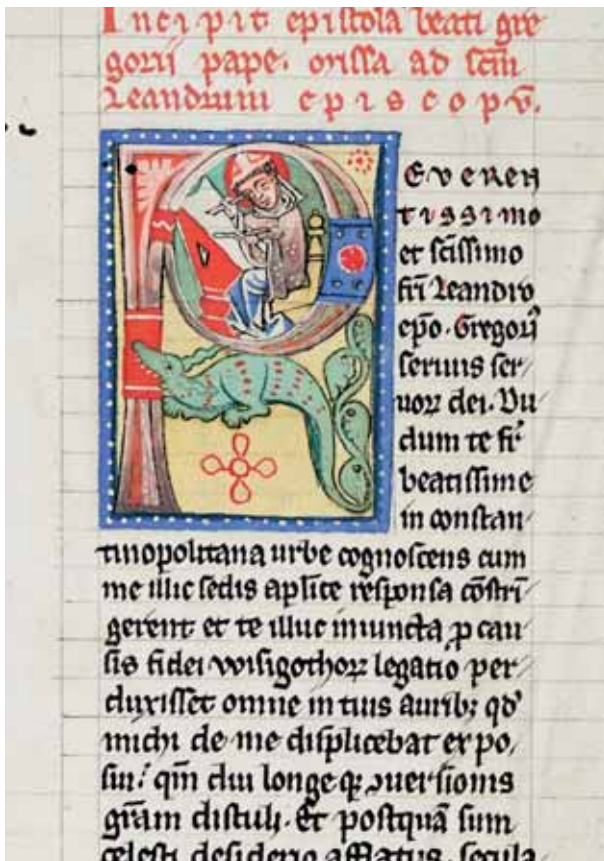 Incipit epistola beati gre
gorii pape. missa ad scm̄
Leandrum episcopū.
Everen
tissimo
et sc̄issimo
fr̄i Leandro
ep̄o. Gregori
seruus ser/
uoꝝ dei. Du
dum te fr̄
beatissime
in constan/
tinopolitana urbe cognoscens cum
me illic sedis ap̄lice responsa cōstri/
gerent et te illuc iniuncta ꝓ cau/
sis fidei wisigothoꝝ legatio per/
duxisset omne in tuis aurib; qd'
michi de me displicebat expo/
sui. qm̄ diu longe qꝫ ꝯuersionis
gr̄am distuli. Et postquā sum
celesti desiderio afflatus. secula